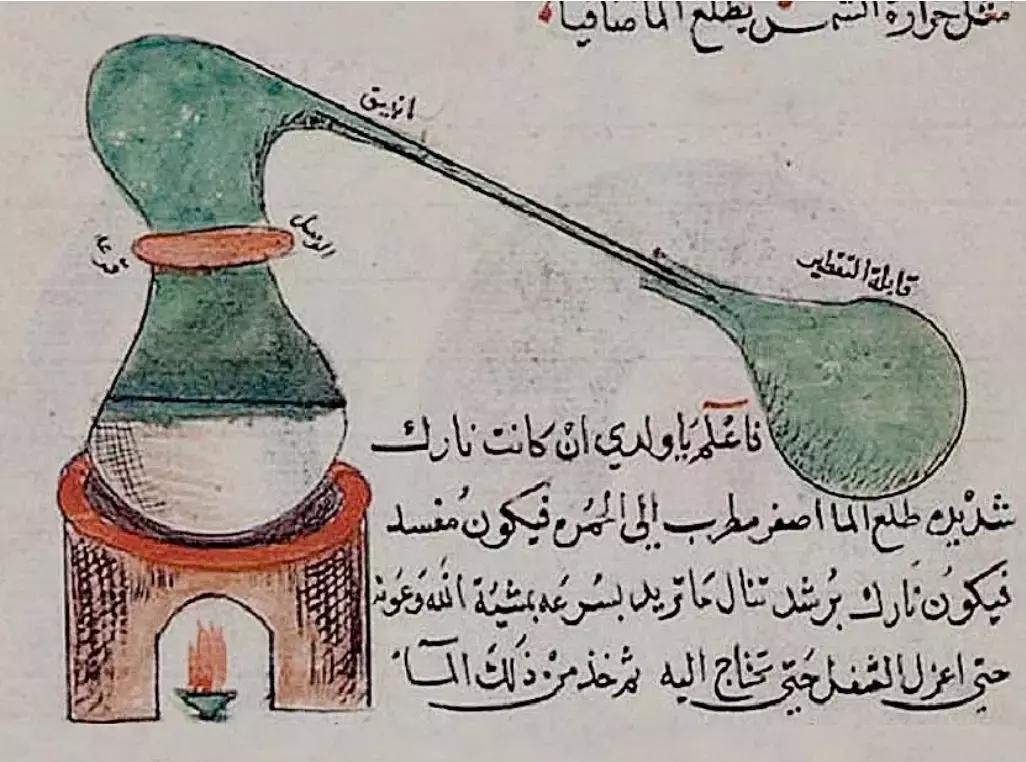 مثل حرارة الشمس يطلع الما صافيا
انبيق
قابلة التقطير
فاعْلم يَا ولدي انْ كانت نارك
شديده طلع الما اصفر مطرب إلى الحمره فيكون مُفسد
فيكونُ نارك برشد تنال مَا تريد بسرعه بمشية الله وَعَونه
حتى اعزل الثفل حَتى تحتاج اليه ثم خذ من ذلكَ المآء